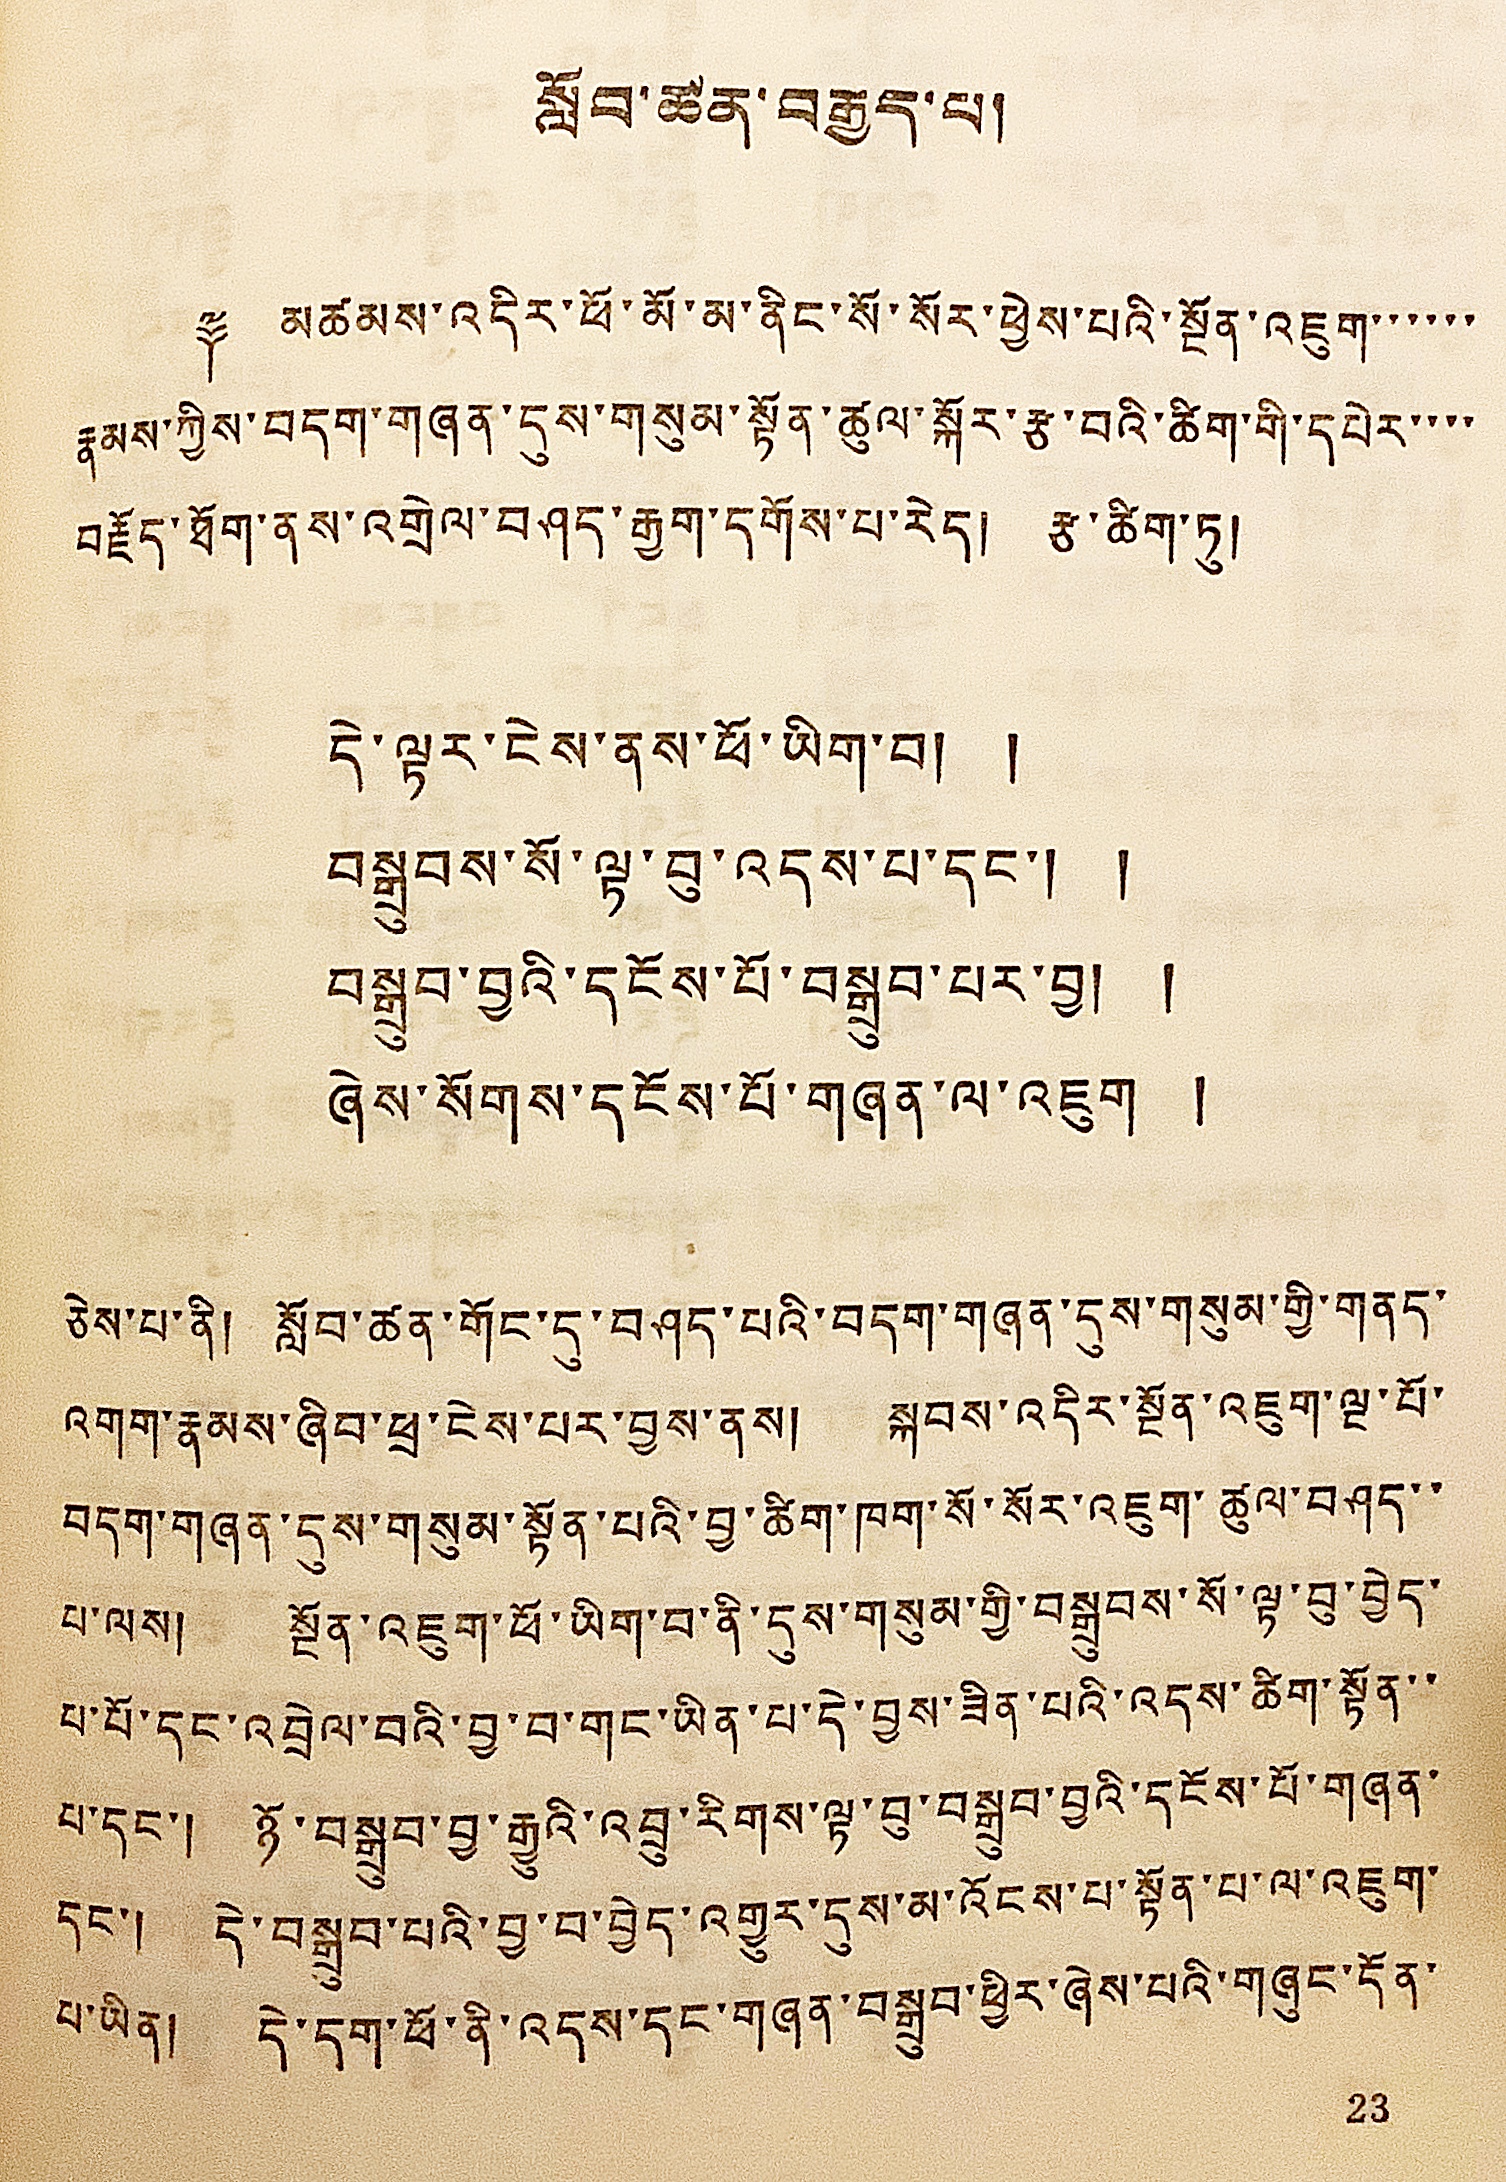 སློབ་ཚན་བརྒྱད་པ།
༈ མཚམས་འདིར་ཕོ་མོ་མ་ནིང་སོ་སོར་ཕྱེས་པའི་སྔོན་འཇུག་་་་་་
རྣམས་ཀྱིས་བདག་གཞན་དུས་གསུམ་སྟོན་ཚུལ་སྐོར་རྩ་བའི་ཚིག་གི་དཔེར་་་་
བརྗོད་ཐོག་ནས་འགྲེལ་བཤད་རྒྱག་དགོས་པ་རེད། རྩ་ཚིག་ཏུ།
དེ་ལྟར་ངེས་ནས་ཕོ་ཡིག་བ། །
བསྒྲུབས་སོ་ལྟ་བུ་འདས་པ་དང་། །
བསྒྲུབ་བྱའི་དངོས་པོ་བསྒྲུབ་པར་བྱ། །
ཞེས་སོགས་དངོས་པོ་གཞན་ལ་འཇུག །
ཅེས་པ་ནི། སློབ་ཚན་གོང་དུ་བཤད་པའི་བདག་གཞན་དུས་གསུམ་གྱི་གནད་
འགག་རྣམས་ཞིབ་ཕྲ་ངེས་པར་བྱས་ནས། སྐབས་འདིར་སྔོན་འཇུག་ལྔ་པོ་
བདག་གཞན་དུས་གསུམ་སྟོན་པའི་བྱ་ཚིག་ཁག་སོ་སོར་འཇུག་ཚུལ་བཤད་་
པ་ལས། སྔོན་འཇུག་ཕོ་ཡིག་བ་ནི་དུས་གསུམ་གྱི་བསྒྲུབས་སོ་ལྟ་བུ་བྱེད་
པ་པོ་དང་འབྲེལ་བའི་བྱ་བ་གང་ཡིན་པ་དེ་བྱས་ཟིན་པའི་འདས་ཚིག་སྟོན་་
པ་དང་། ཉོ་བསྒྲུབ་བྱ་རྒྱུའི་འབྲུ་རིགས་ལྟ་བུ་བསྒྲུབ་བྱའི་དངོས་པོ་གཞན་
དང་། དེ་བསྒྲུབ་པའི་བྱ་བ་བྱེད་འགྱུར་དུས་མ་འོངས་པ་སྟོན་པ་ལ་འཇུག་
པ་ཡིན། དེ་དག་ཕོ་ནི་འདས་དང་གཞན་བསྒྲུབ་ཕྱིར་ཞེས་པའི་གཞུང་དོན་
23